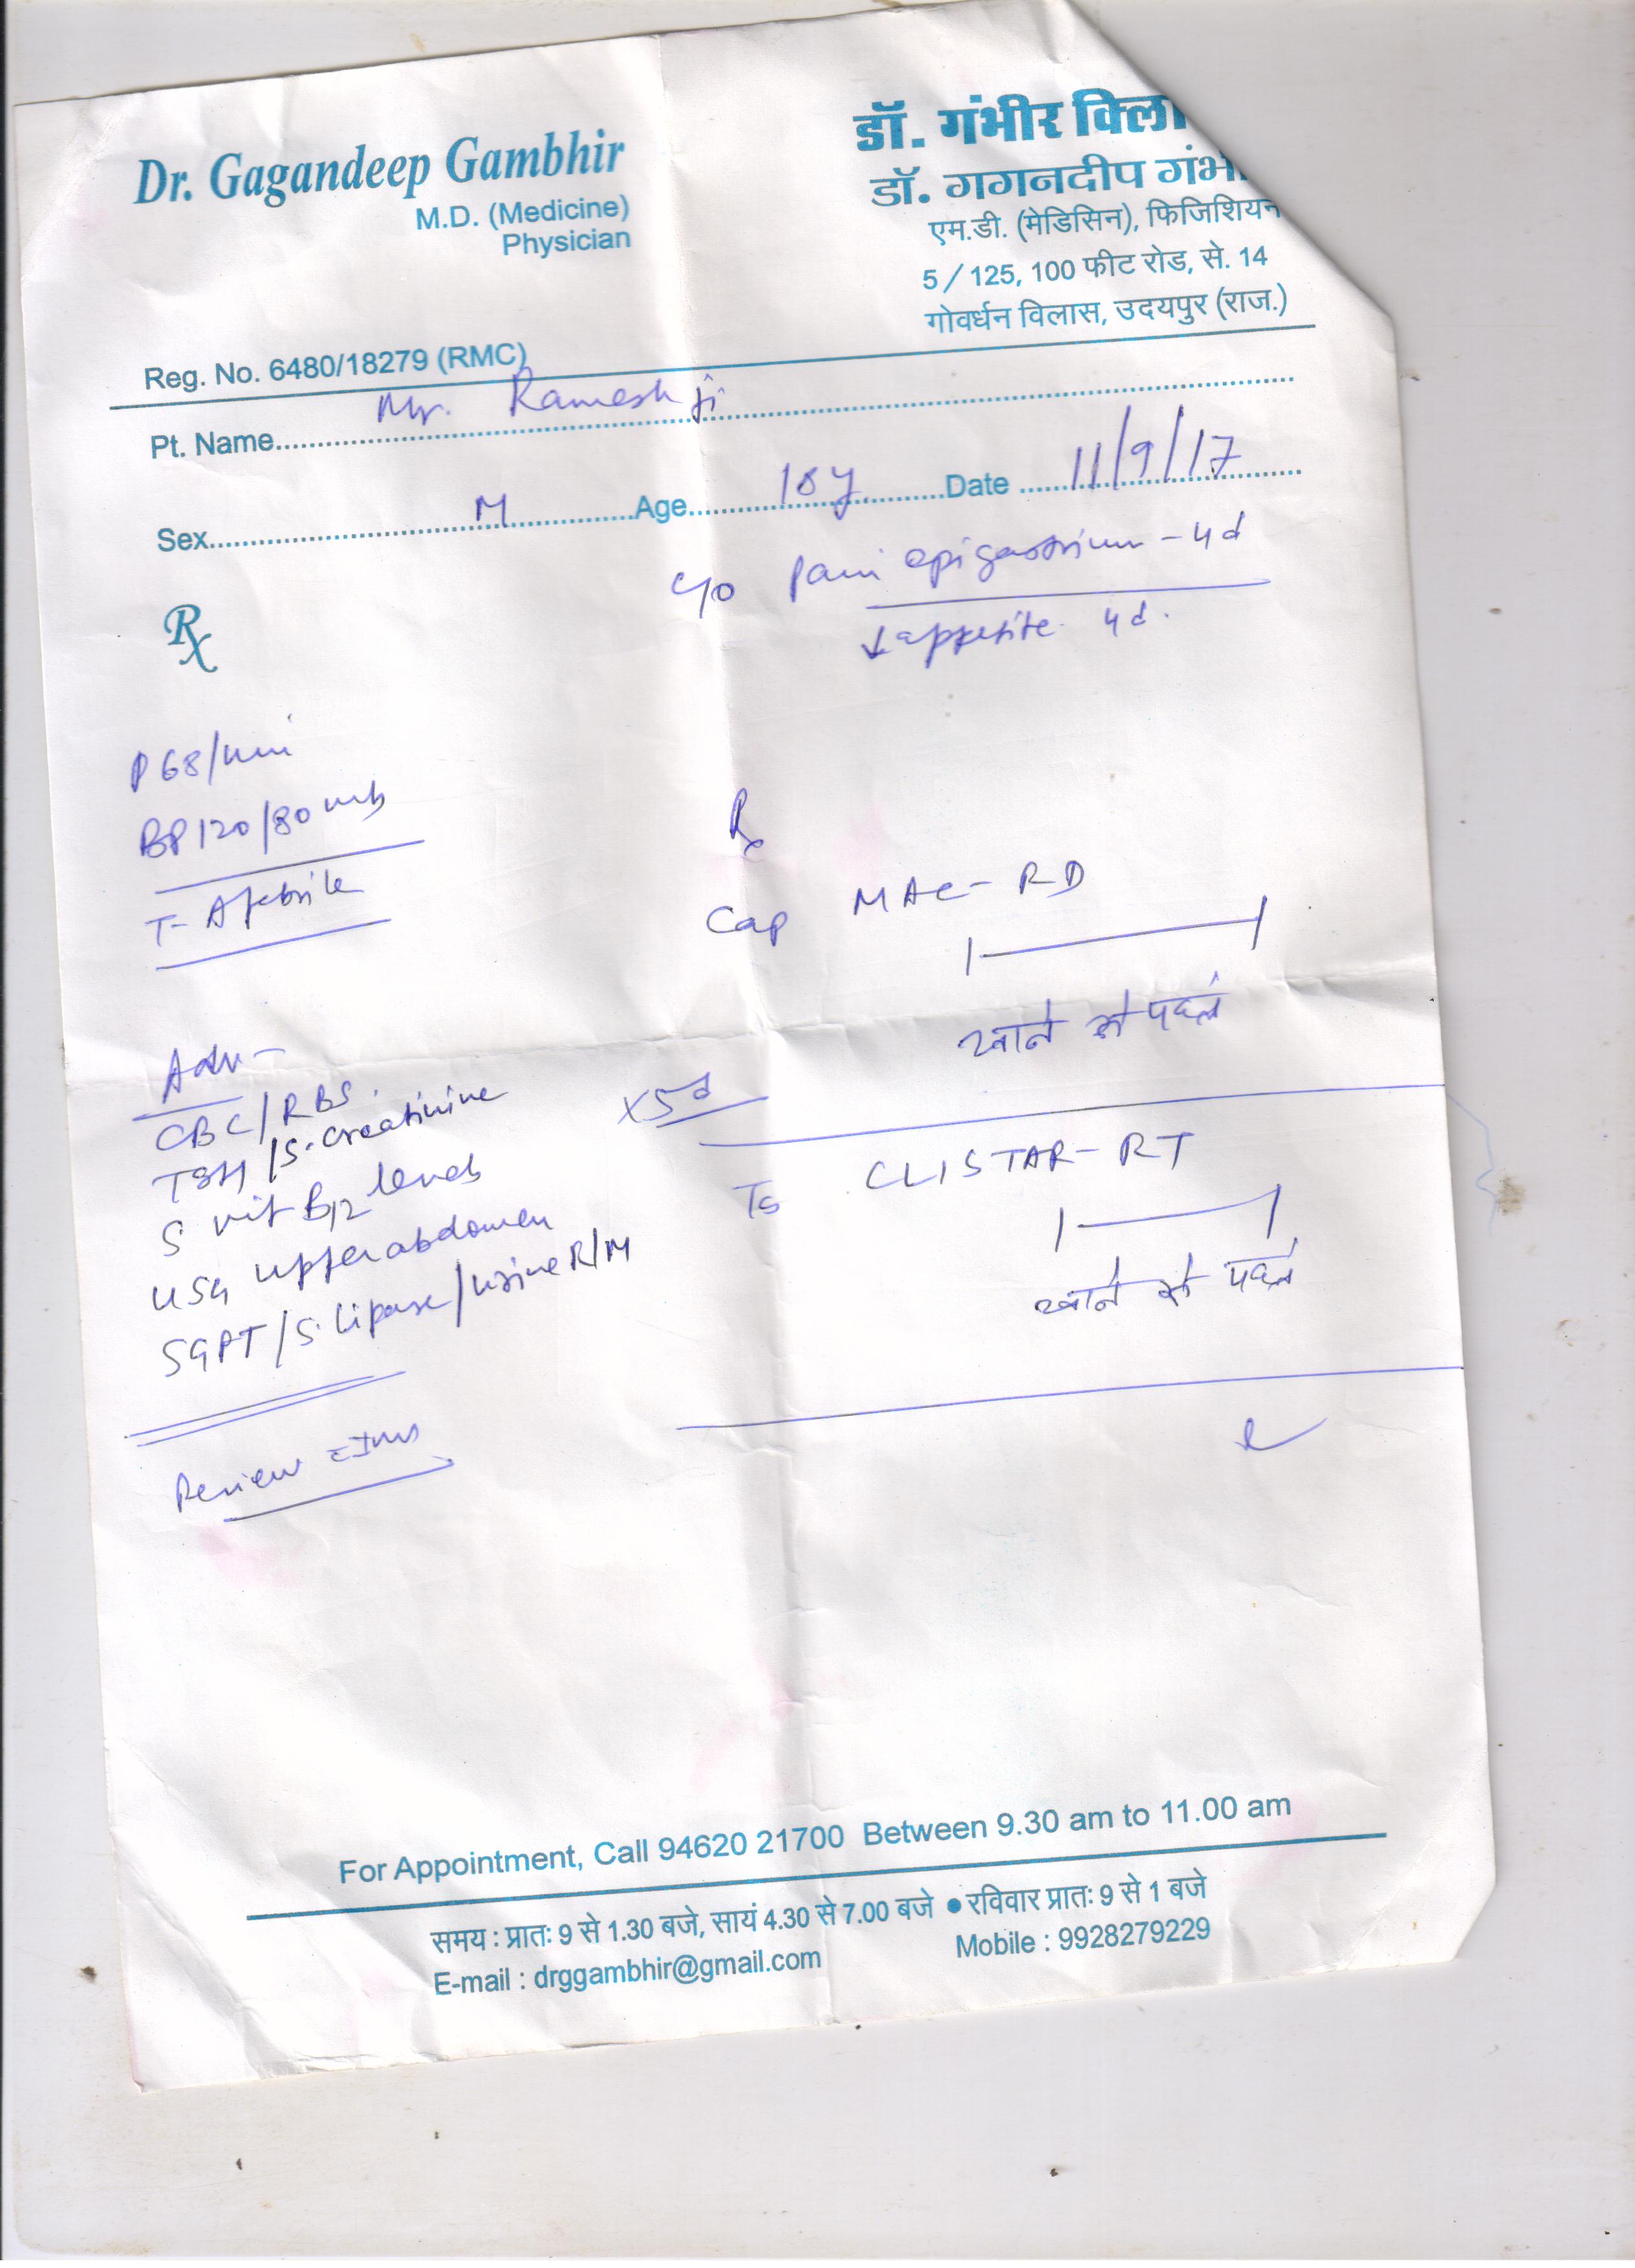 Dr. Gagandeep Gambhir
M.D. (Medicine)
Physician
डॉ. गंभीर क्लि
डॉ. गगनदीप गंभी
एम.डी. (मेडिसिन), फिजिशियन
5 / 125, 100 फीट रोड, से. 14
गोवर्धन विलास, उदयपुर (राज.)
Reg. No. 6480/18279 (RMC)
Pt. Name Mr. Ramesh ji
Sex M Age 18y Date 11/9/17
Rx
c/o Pain epigastrium - 4d
↓ appetite 4d.
P 68/min
BP 120/80
T- Afebrile
Rx
Cap MAC- RD
|———|
खाने से पहले
x5d
Adv -
CBC/RBS.
TSH/S. Creatinine
S vit B12 levels
USG upper abdomen
SGPT/S. lipase/urine R/M
CLISTAR- RT
|———|
खाने से पहले
Review
For Appointment, Call 94620 21700 Between 9.30 am to 11.00 am
समय : प्रातः 9 से 1.30 बजे, सायं 4.30 से 7.00 बजे ● रविवार प्रातः 9 से 1 बजे
E-mail : drggambhir@gmail.com Mobile : 9928279229